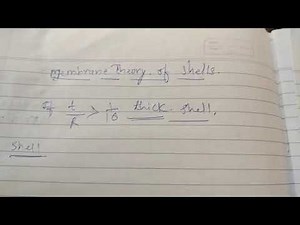 Membrane Theory of Shells.
If t/R > 1/10 thick shell,
Shell